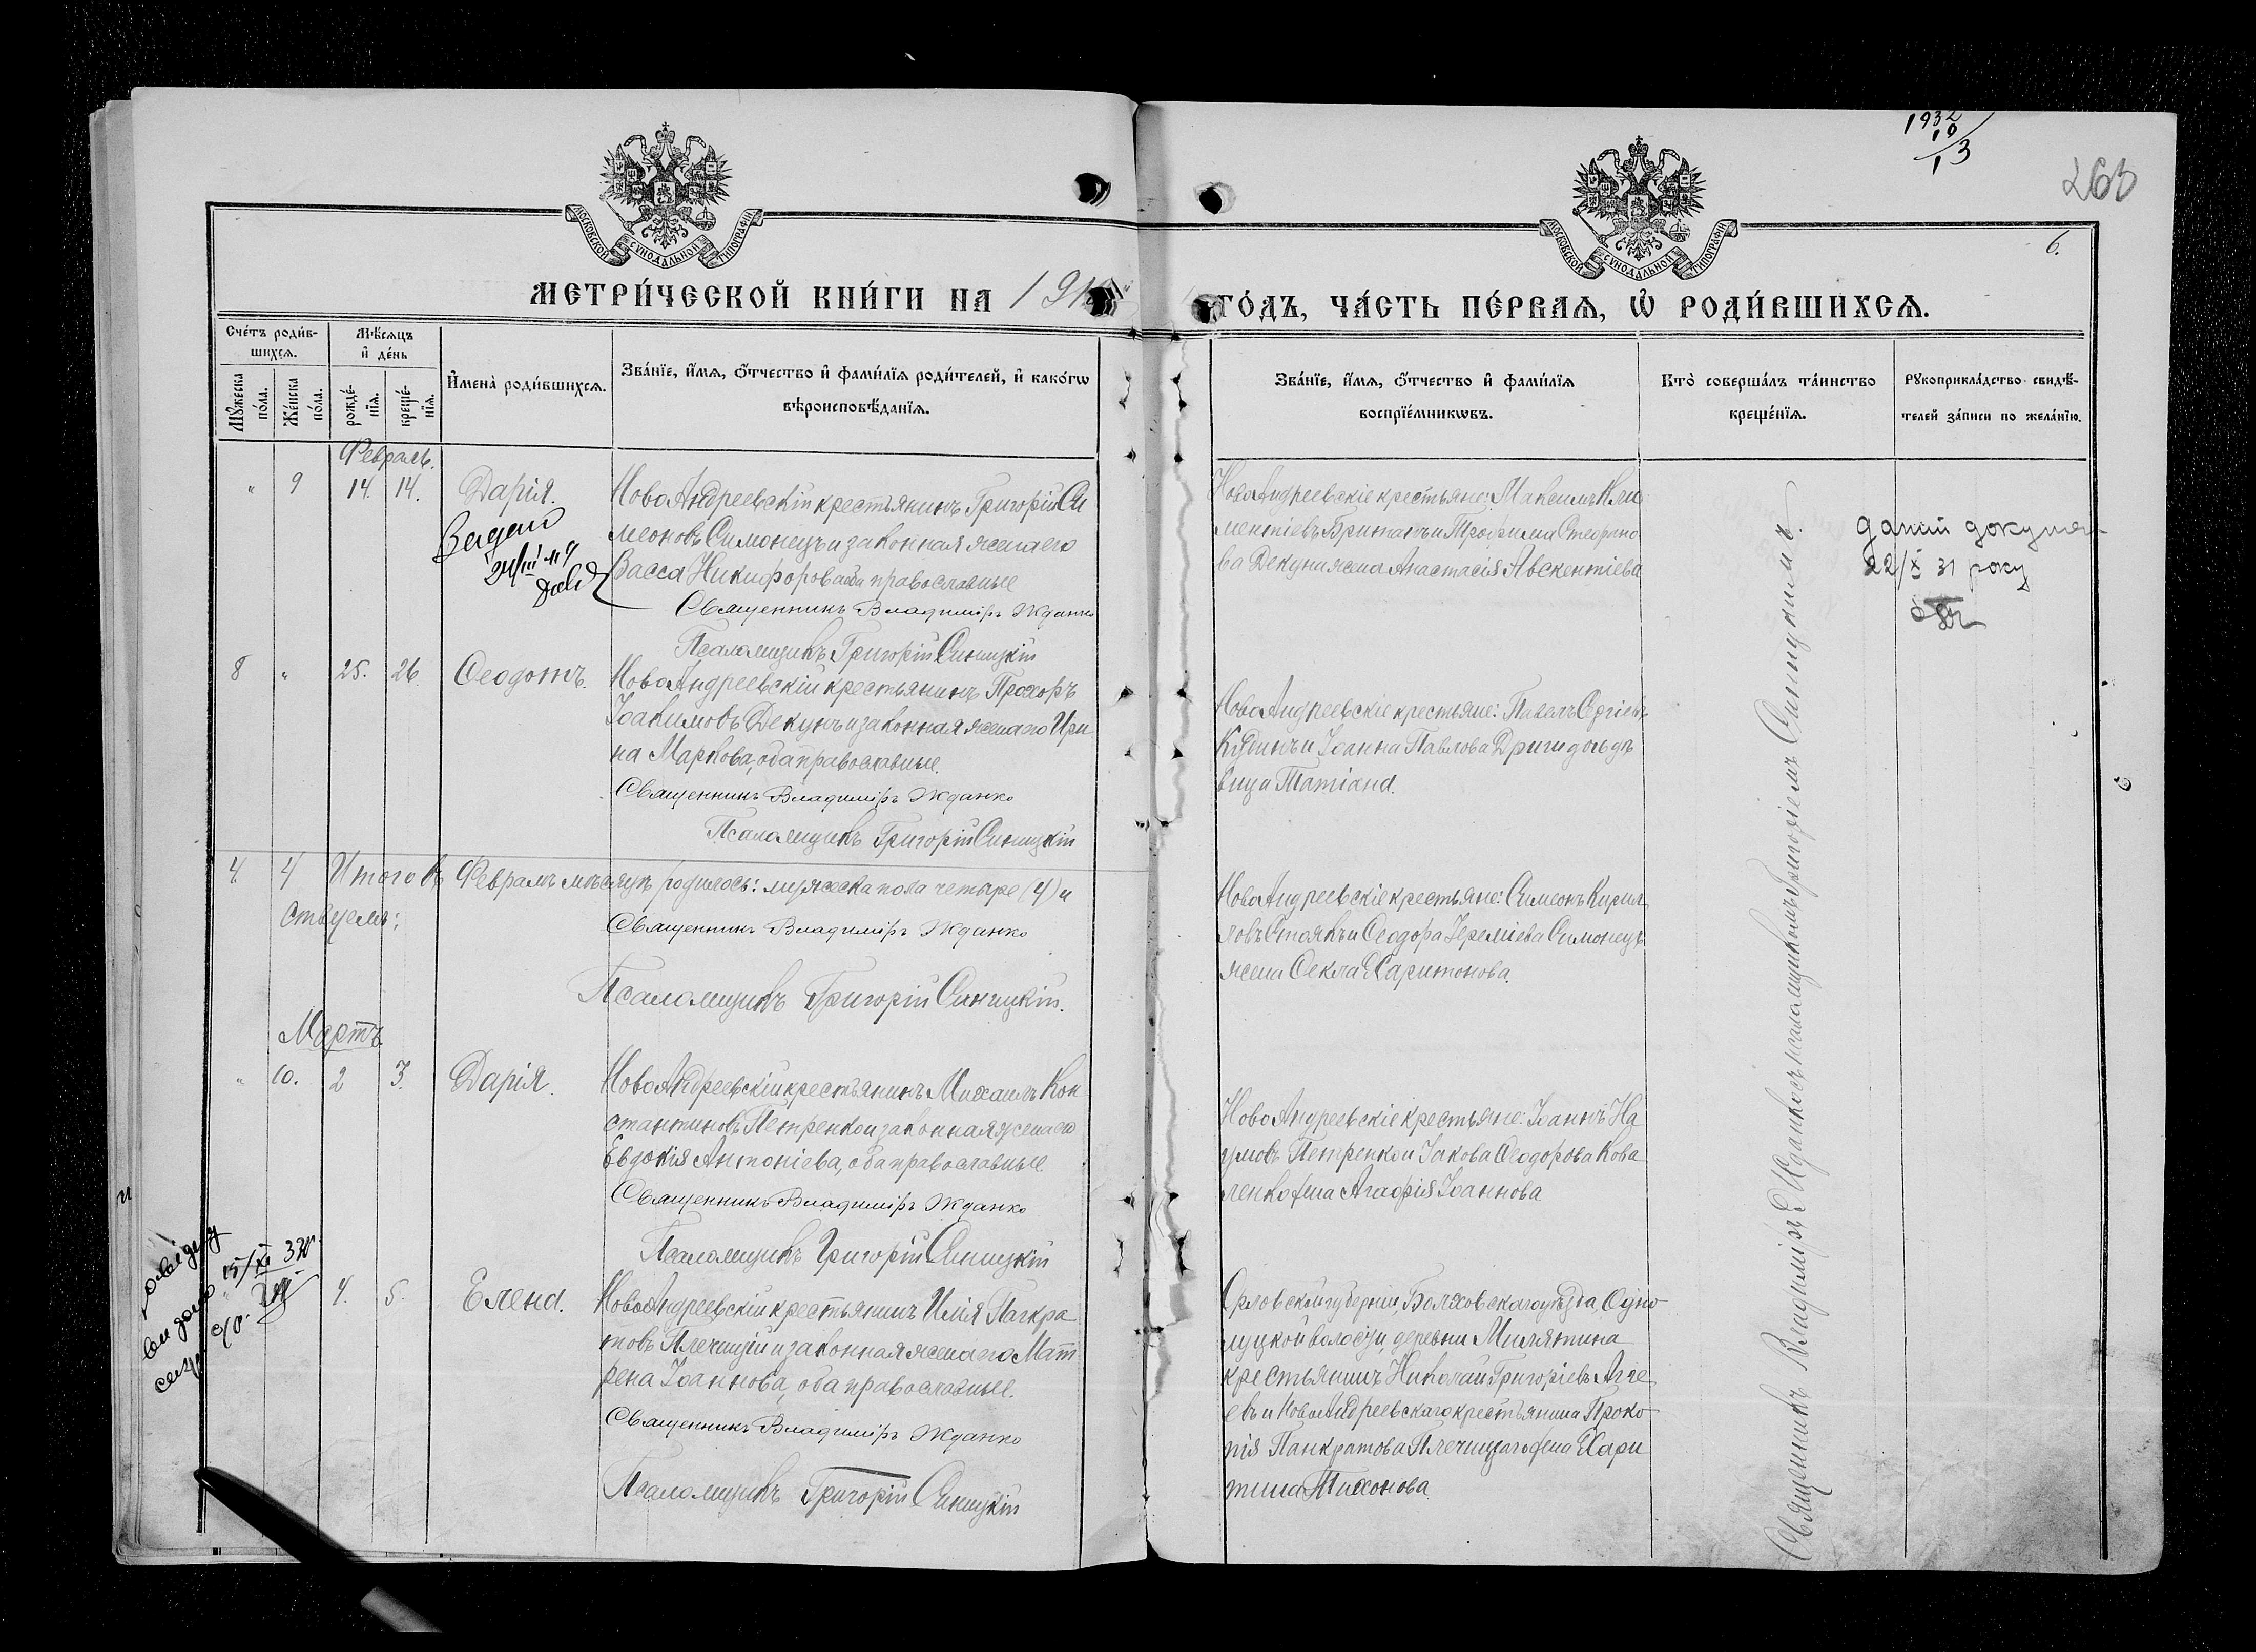 1932
19
13
263
6.
МОСКОВСКОЙ СѴНОДАЛЬНОЙ ТИПОГРАФІИ
МОСКОВСКОЙ СѴНОДАЛЬНОЙ ТИПОГРАФІИ
МЕТРИ́ЧЕСКОЙ КНИ́ГИ НА 191
ГО́ДЪ, ЧА́СТЬ ПЕ́РВАѦ, Ѡ҆ РОДИ́ВШИХСѦ.
Сче́тъ роди́в-
шихсѧ.
Мꙋ́жеска по́ла.
Же́нска по́ла.
Мѣ́сѧцъ
и҆ де́нь
рожде́-
нїѧ.
креще́-
нїѧ.
И҆мена̀ роди́вшихсѧ.
Зва́нїе, и҆́мѧ, о҆́тчество и҆ фами́лїѧ роди́телей, и҆ како́гѡ
вѣроисповѣ́данїѧ.
Зва́нїе, и҆́мѧ, о҆́тчество и҆ фами́лїѧ
воспрїе́мникѡвъ.
Кто̀ соверша́лъ та́инство
креще́нїѧ.
Рꙋкоприкла́дство свидѣ́-
телей за́писи по жела́нїю.
Февраль.
" 9 14. 14. Дарія.
НовоАндреевскій крестьянинъ Григорій Си
меоновъ Симонецъ и законная жена его
Васса Никифорова оба православные
Священникъ Владиміръ Жданко
Псаломщикъ Григорій Синицкій
НовоАндреевскіе крестьяне: Максимъ Кли
ментіевъ Бритакъ и Трофима Стефано
ва Декуни жена Анастасія Авксентіева
даний докумен-
22/X 31 року
8 " 25. 26. Ѳеодотъ.
НовоАндреевскій крестьянинъ Прохоръ
Іоакимовъ Декунъ и законная жена его Ири
на Маркова, оба православные.
Священникъ Владиміръ Жданко
Псаломщикъ Григорій Синицкій
НовоАндреевскіе крестьяне: Павелъ Сергіевъ
и Іоанна Павлова дочь дѣ
вица Татіана.
4 4 Итого въ Февралѣ мѣсяцѣ родилось: мужеска пола четыре (4) и
Священникъ Владиміръ Жданко
Псаломщикъ Григорій Синицкій.
НовоАндреевскіе крестьяне: Симеонъ Кирил
ловъ Стоякъ и Ѳеодора Іереміева Симонецъ
жена Ѳекла Харитонова.
Мартъ
" 10. 2 3. Дарія.
НовоАндреевскій крестьянинъ Михаилъ Кон
стантиновъ Петренко и законная жена его
Евдокія Антоніева, оба православные
Священникъ Владиміръ Жданко
Псаломщикъ Григорій Синицкій
НовоАндреевскіе крестьяне: Іоаннъ На
умовъ Петренко и Іакова Ѳеодорова Кова
ленко жена Агафія Іоаннова
15/XI 32р.
4. 5. Елена.
НовоАндреевскій крестьянинъ Илія Панкра
товъ Плечицій и законная жена его Мат
рена Іоаннова, оба православные.
Священникъ Владиміръ Жданко
Псаломщикъ Григорій Синицкій
Орловской губерніи, Болховскаго уѣзда, Одно
луцкой волости, деревни Милятина
крестьянинъ Николай Григоріевъ Агее
евъ и НовоАндреевскаго крестьянина Проко
пія Панкратова Плечицаго жена Хари
тина Тихонова
Священникъ Владиміръ Жданко съ псаломщикомъ Григоріемъ Синицкимъ.